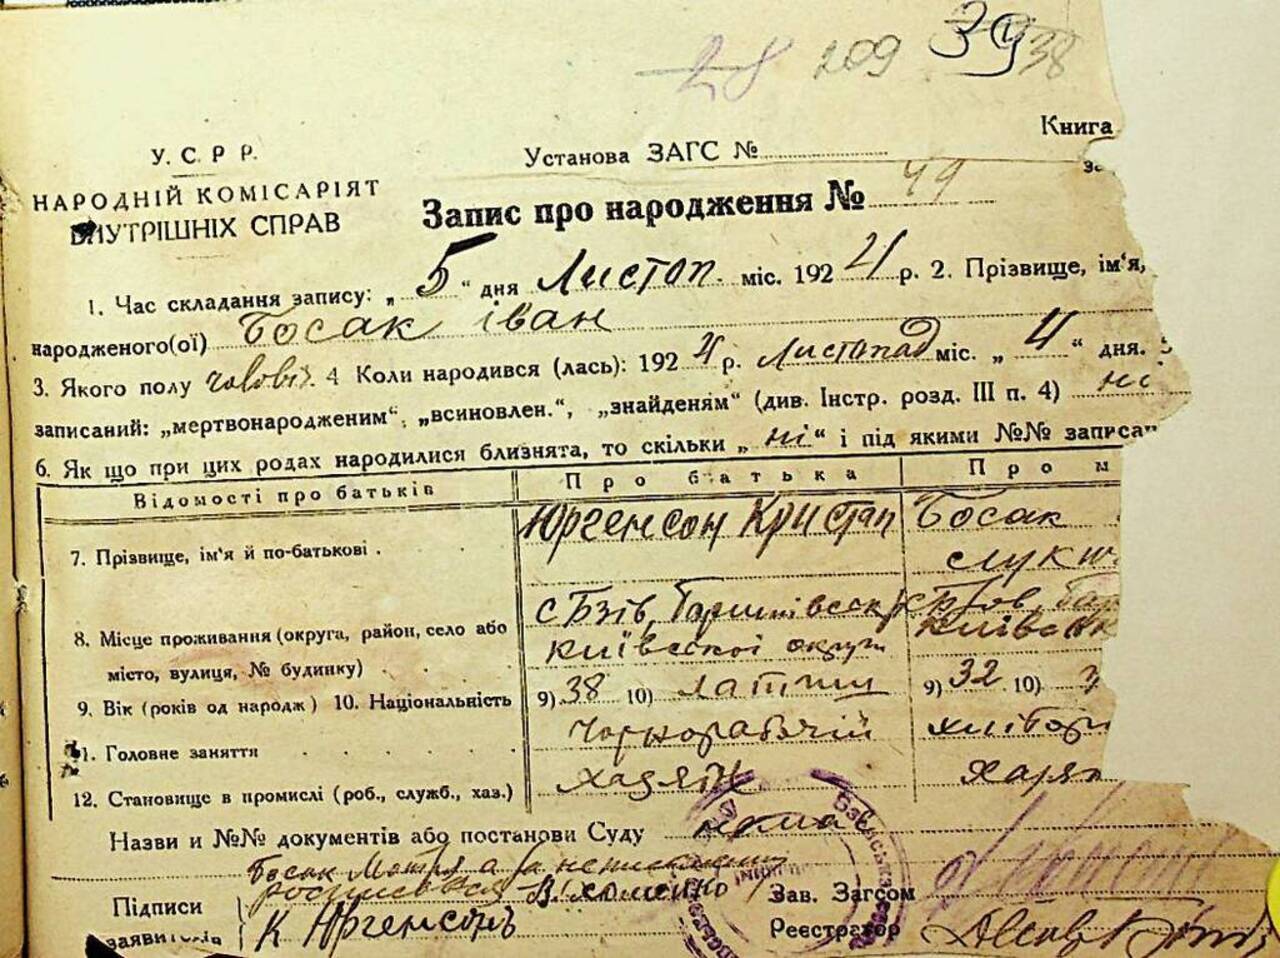 28 209 39 38
Книга
У. С. Р. Р.
Установа ЗАГС №
НАРОДНІЙ КОМІСАРІЯТ
ВНУТРІШНІХ СПРАВ
Запис про народження № 49
1. Час складання запису: „ 5 “ дня Листоп. міс. 1924 р. 2. Прізвище, ім'я,
народженого(ої) Босак Іван
3. Якого полу чолові. 4 Коли народився (лась): 1924 р. Листопад міс. „ 4 “ дня.
записаний: „мертвонародженим“, „всиновлен.“, „знайденям“ (див. Інстр. розд. III п. 4) ні
6. Як що при цих родах народилися близнята, то скільки „ ні “ і під якими №№ записа
Відомості про батьків Про батька Про м
7. Прізвище, ім'я й по-батькові . Юргенсон Кристап Босак
8. Місце проживання (округа, район, село або с Бзів, Баришівськ
місто, вулиця, № будинку) Київської округи
9. Вік (років од народж) 10. Національність 9) 38 10) латиш 9) 32 10)
11. Головне заняття чорнорабочій хлібор
12. Становище в промислі (роб., служб., хаз.) хазяїн
Назви и №№ документів або постанови Суду нема
Босак Мотря а за неписьменну
росписався В. Хоменко
Підписи
заявителів
К Юргенсонъ
Зав. Загсом
Реєстратор